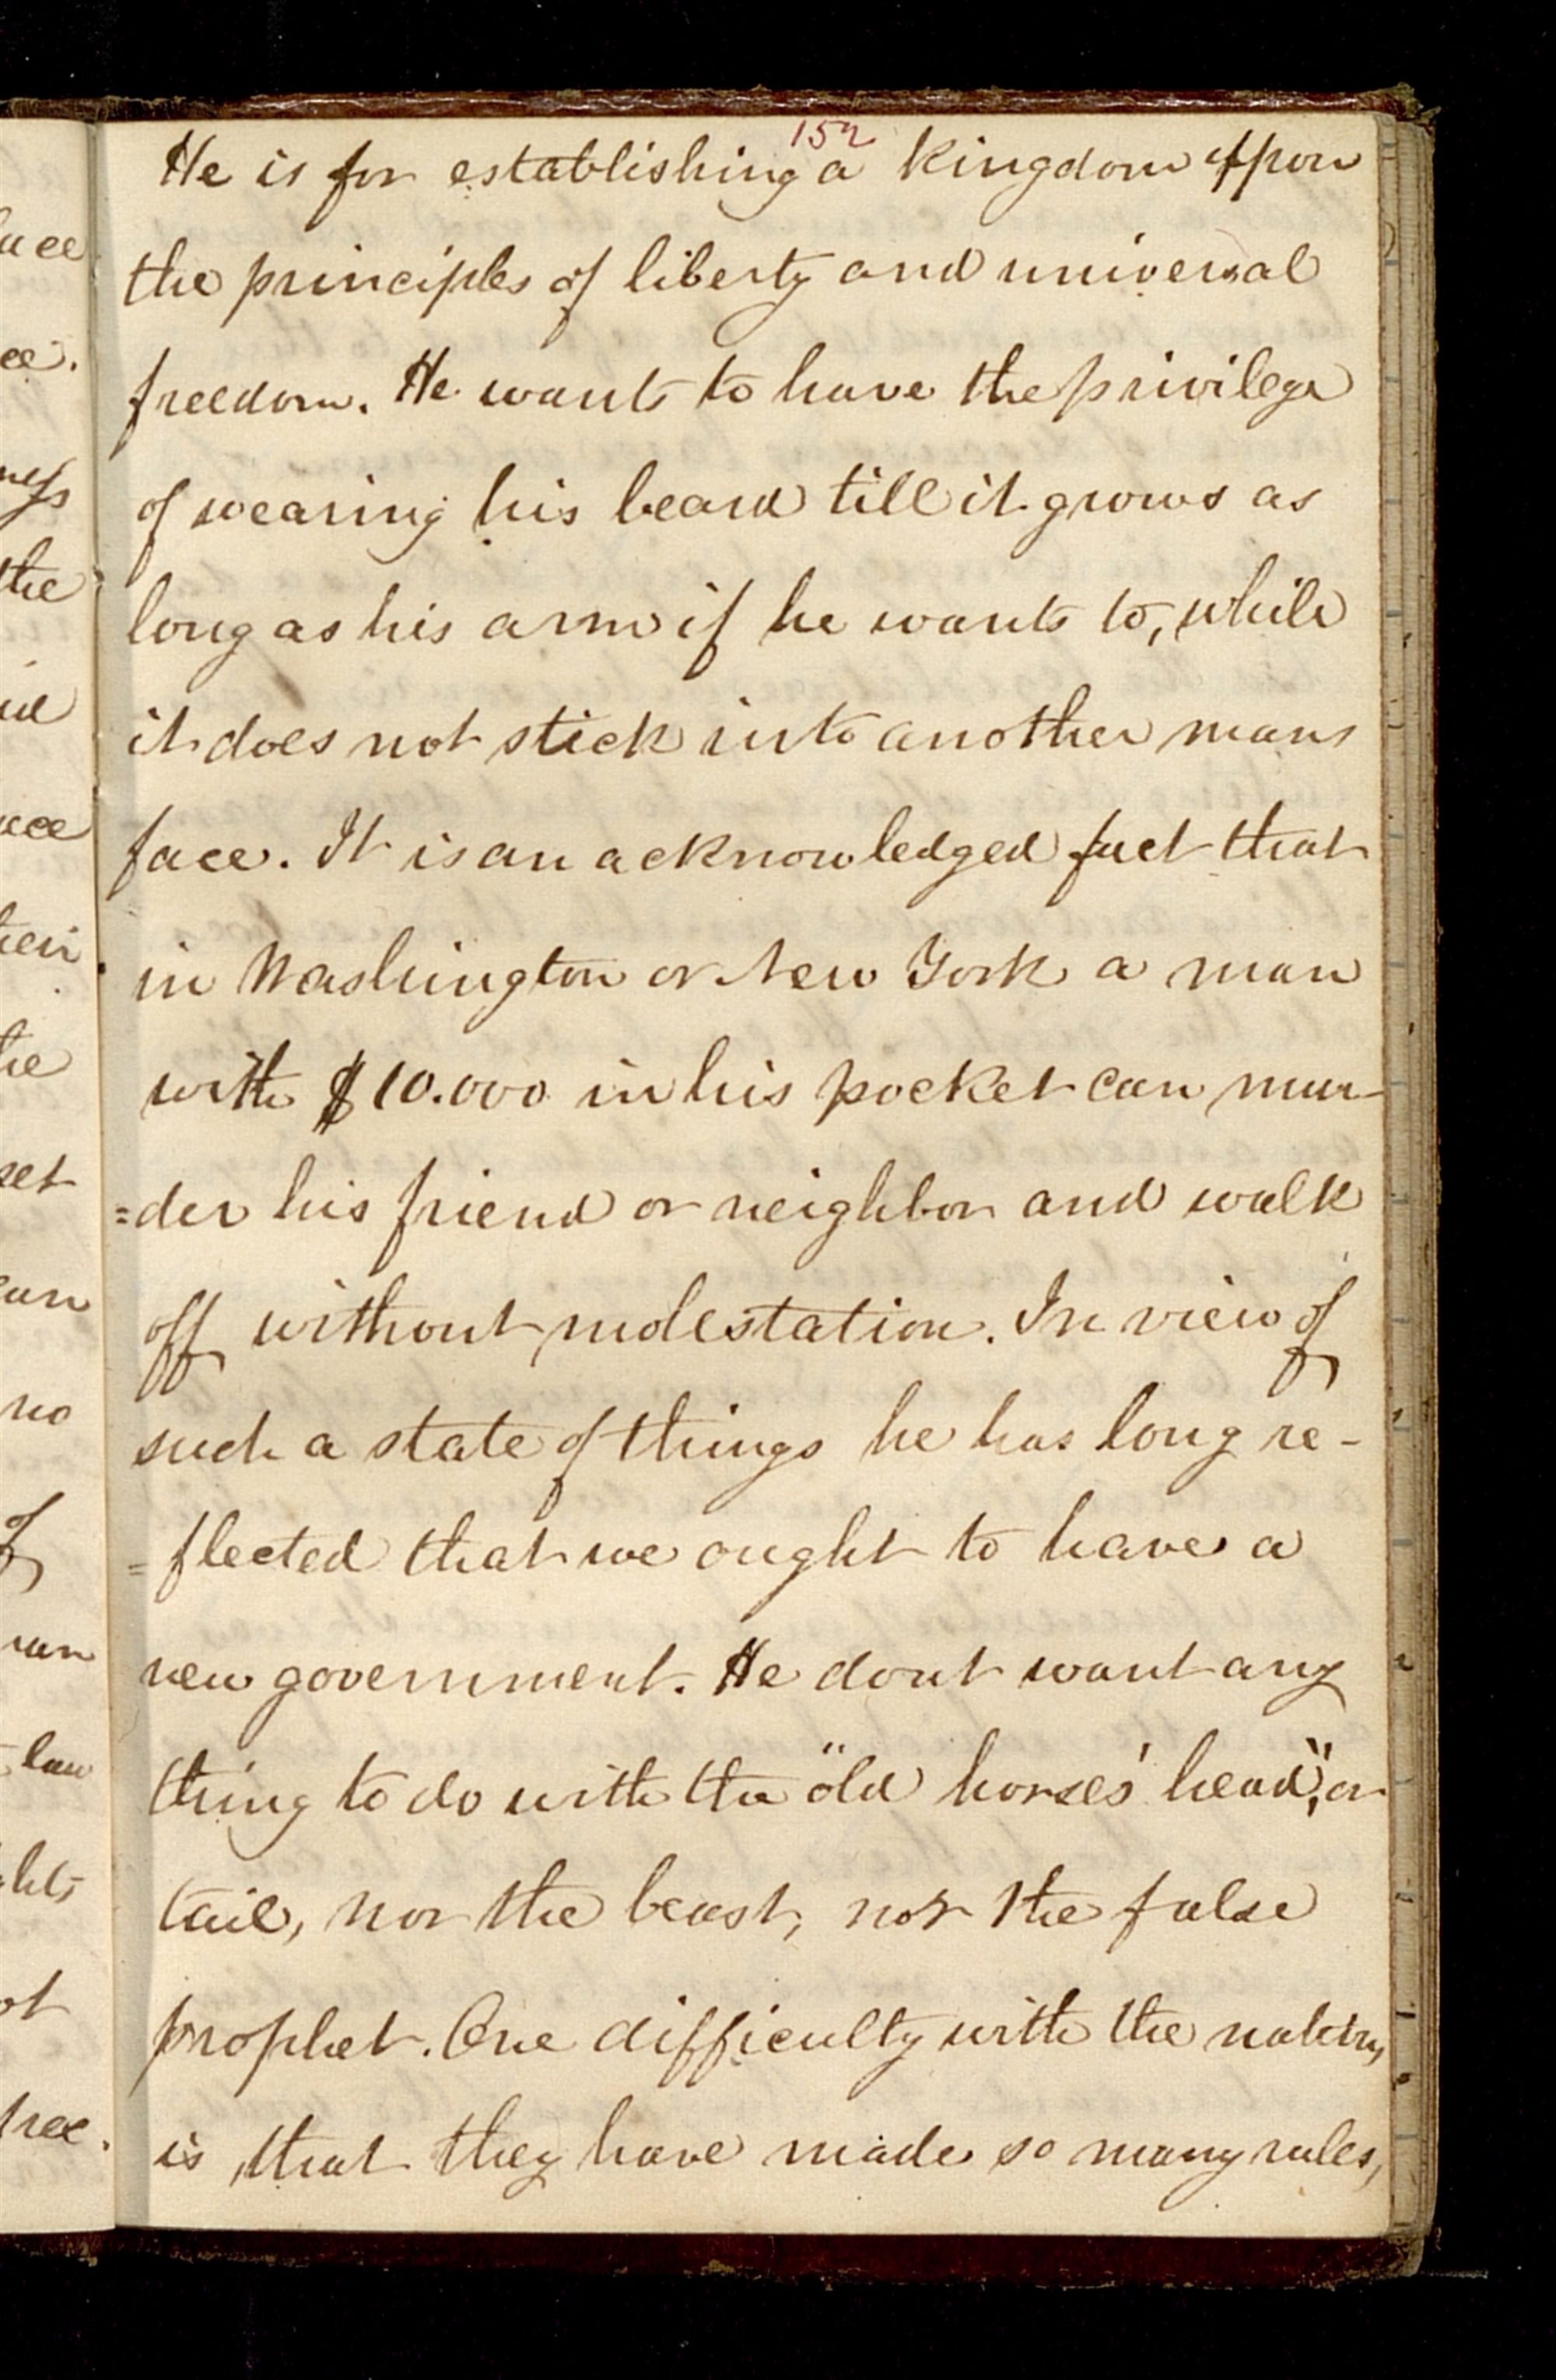 152
He is for establishing a Kingdom upon
the principles of liberty and universal
freedom. He wants to have the privilege
of wearing his beard till it grows as
long as his arm if he wants to, while
it does not stick into another mans
face. It is an acknowledged fact that
in Washington or New York a man
with $10.000 in his pocket can mur-
=der his friend or neighbor and walk
off without molestation. In view of
such a state of things he has long re-
=flected that we ought to have a
new government. He dont want any
thing to do with the "old horses' head", or
tail, nor the beast, nor the false
prophet. One difficulty with the nation,
is, that they have made so many rules,